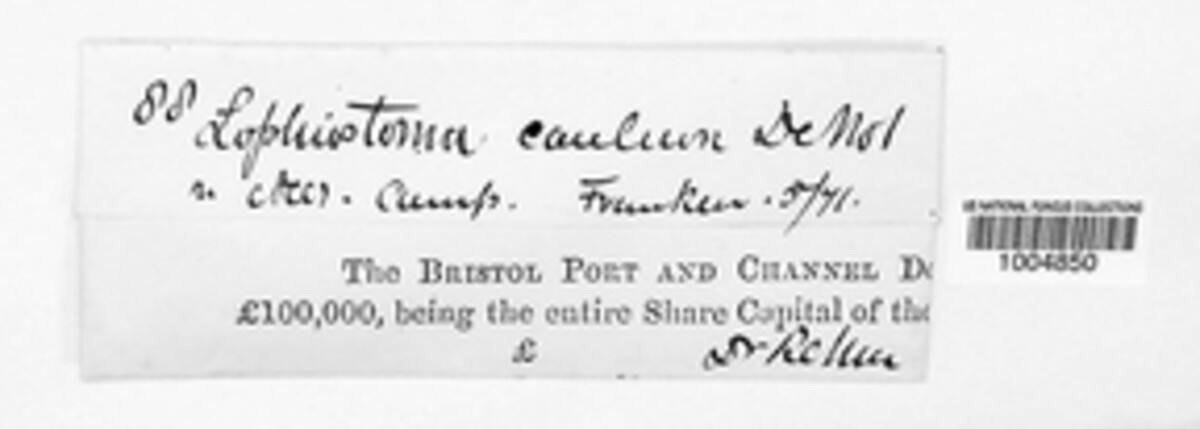 88 Lophiostoma caulium De Not
Camp. Franken. 5/71.
The BRISTOL PORT AND CHANNEL D
£100,000, being the entire Share Capital of the
£ Dr Rehm
US NATIONAL FUNGUS COLLECTIONS
1004850